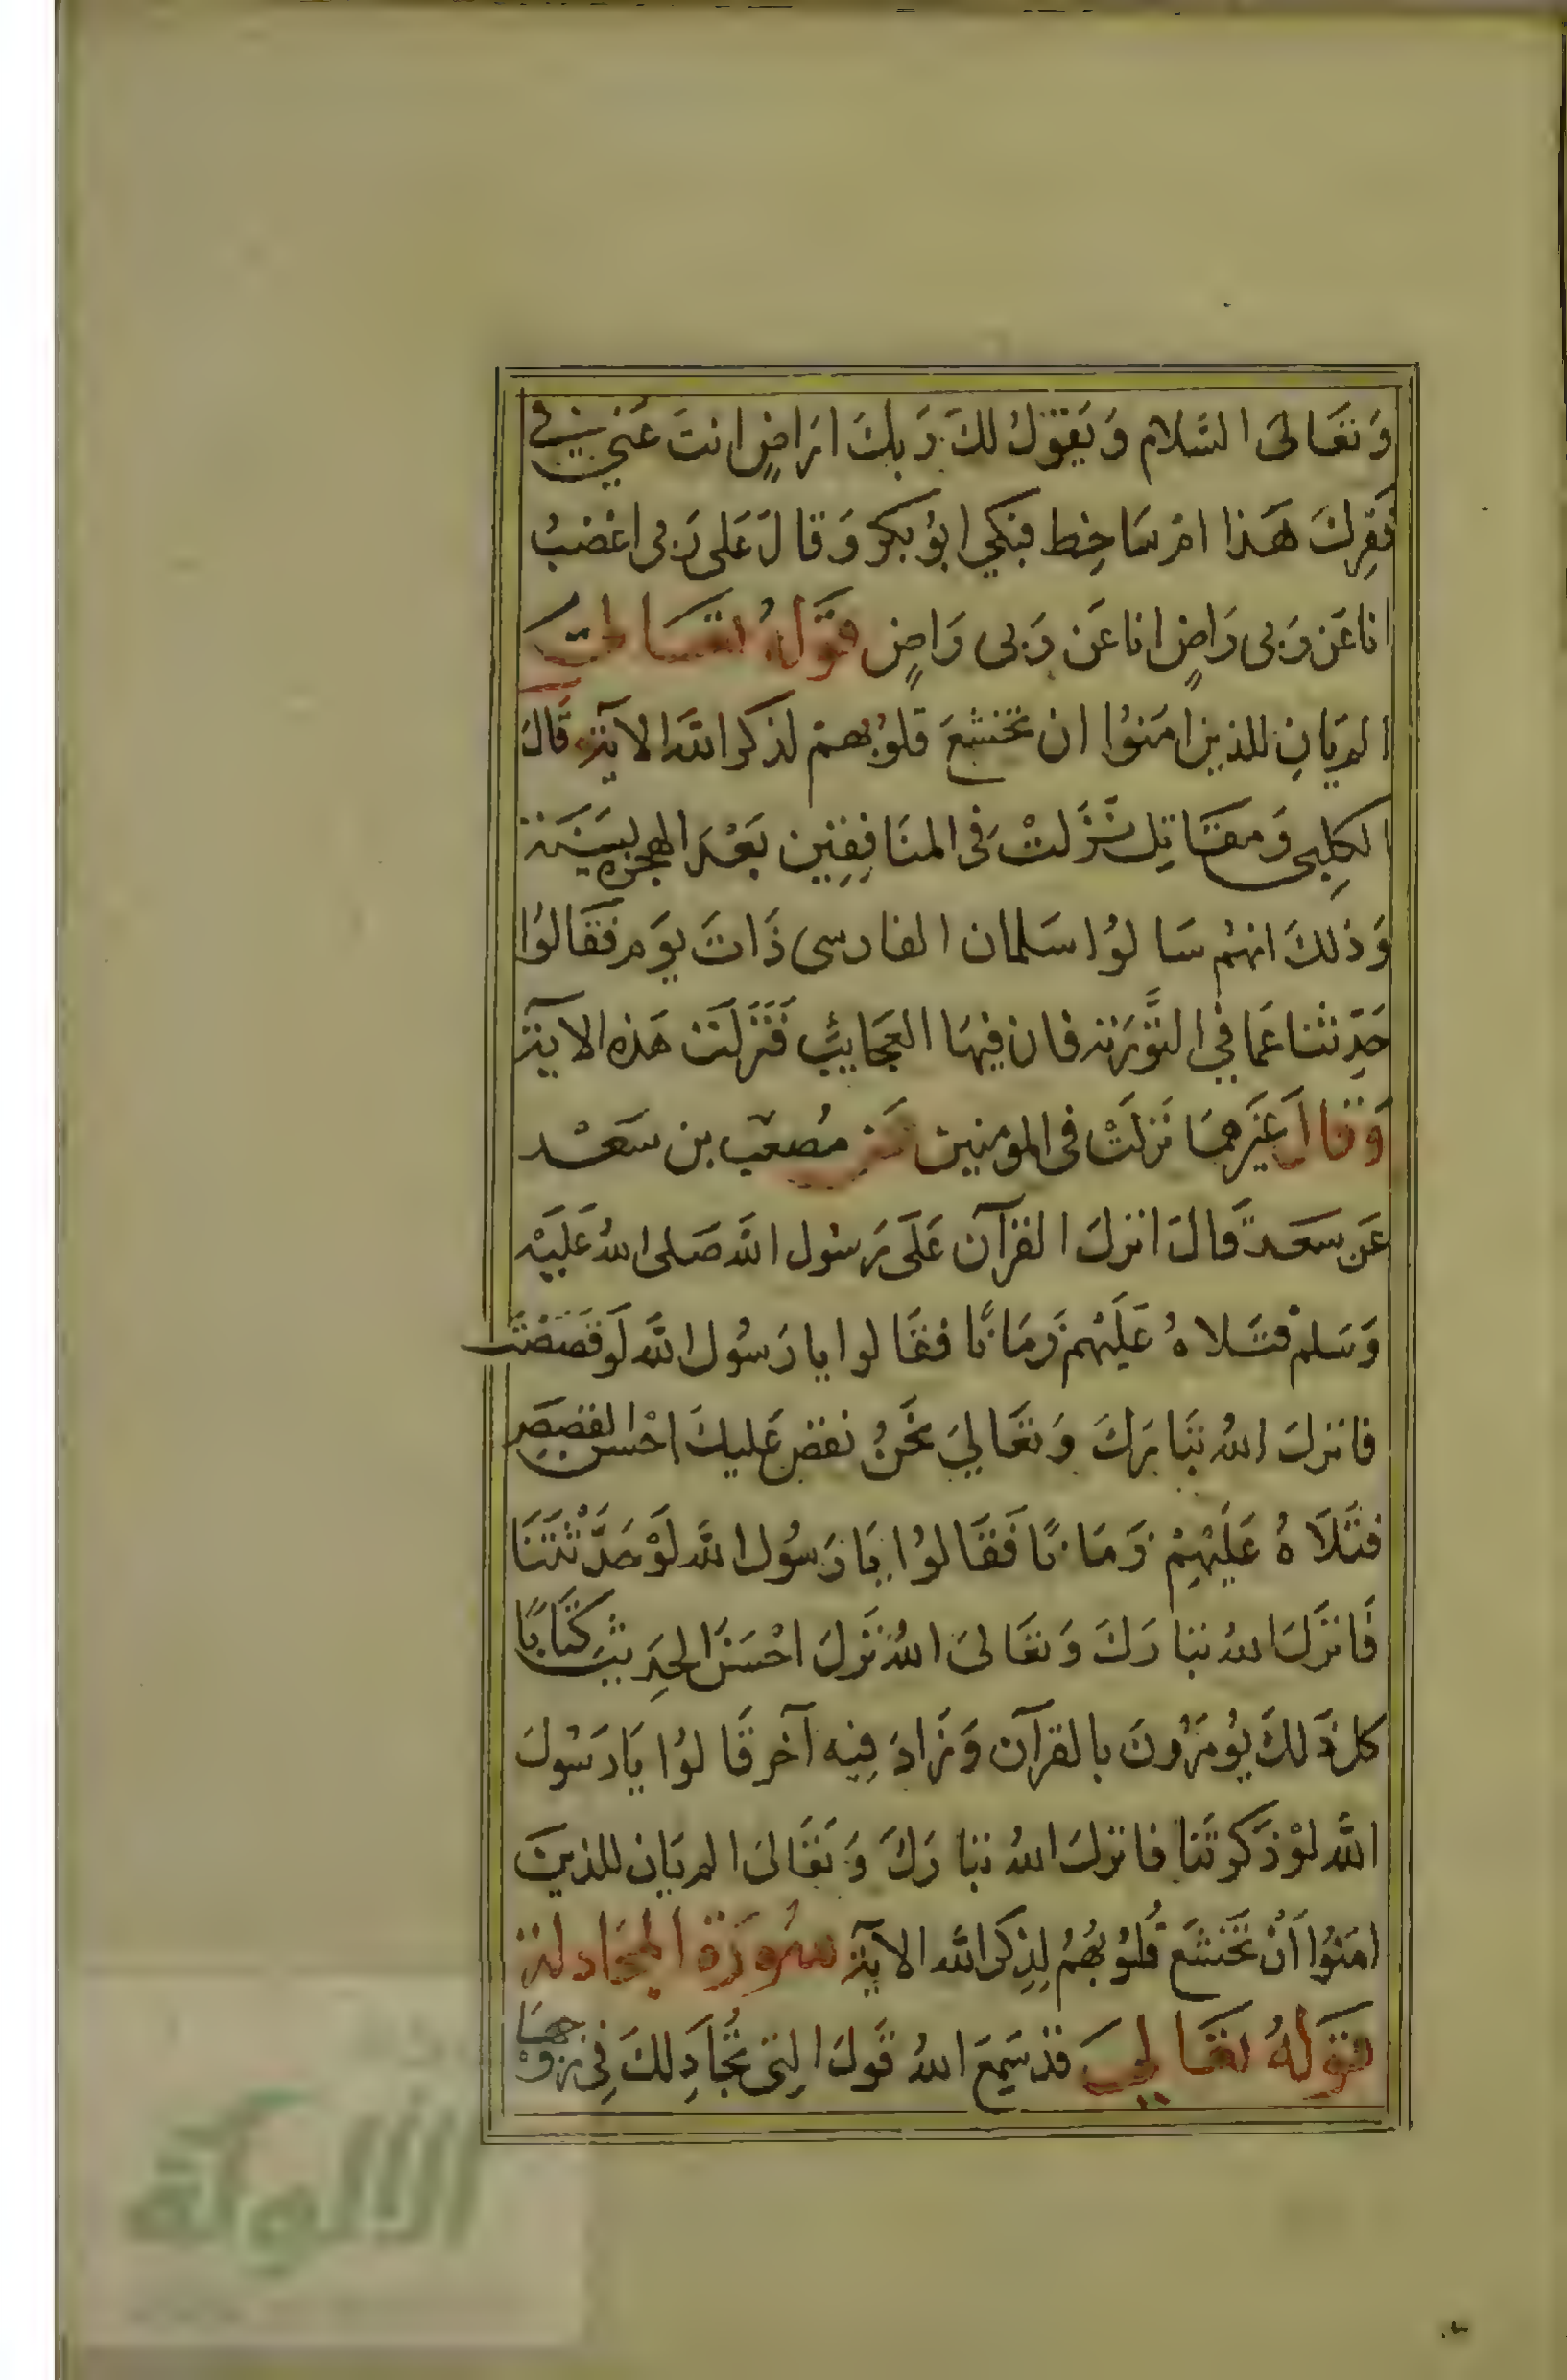 وَتعَالىَ السَّلام وَيَقولُ لكَ رَبكَ ارَاضٍ انتَ عَني في
فقرِكَ هَذا امْ سَاخِط فبَكي ابُو بَكر وَقالَ عَلى رَبى اغضبُ
اناعَن رَبى رَاضٍ اناعَن رَبى رَاضٍ قوَلهُ تعَـالىَ
الم يَانِ للذين امَنوُا ان تخشعَ قلوُبهمْ لذكر الله الايَة قَالَ
الكلِبى وَمقَاتِل نَزَلتْ فى المنَافِقِين بَعْدَ الهجرة بسَنَة
وَذلكَ انهُم سَالوُا سَلمان الفارسى ذَاتَ يوَم فَقَالوُا
حَدِثنا عَما في التَّوْرَية فان فيهَا العَجَايبُ فَنَزلَت هَذه الاية
وَقالَ غيَرهمَا نَزلَتْ فى المومنِين عَن مُصعَب بن سَعْـد
عَن سَعَـد قَالَ انزلَ القرآن عَلَى رَسُول الله صَلى اللهُ عَليَْه
وَسَلمْ فتَـلاهُ عَليَهُم زَمَانًا فقَالوا يا رَسُول الله لَو قَصَصْتَ
فانزلَ اللهُ تبَارَكَ وَتعَاليَ نحَنُ نقص عَليكَ احْسن القَصصِ
فتَلَاهُ عَليَهِمْ زَمَانًا فَقَالوُا يَا رَسُول الله لَوْحَدَّثْتَنَا
فَانزَلَ اللهُ تبارَكَ وَتعَالىَ اللهُ نَزلَ احْسَنَ الحدِيثَ كتَابًا
كل ذَلكَ يُومَرُونَ بالقرآن وَزَادَ فِيه آخر قَالوُا يَا رَسُولَ
الله لوْذَكرتَنا فانزلَ اللهُ تبارَكَ وَتعَالىَ الم يَان للذينَ
امَنوُا اَنْ تَخَشَع قُلوُبُهُمْ لِذِكر الله الايَة سُورَة المجَادلة
قوَلهُ تعَـالىَ قدْ سَمِعَ اللهُ قَولَ التِى تُجَادِلكَ فِى زَوْجهَا
الألوكة